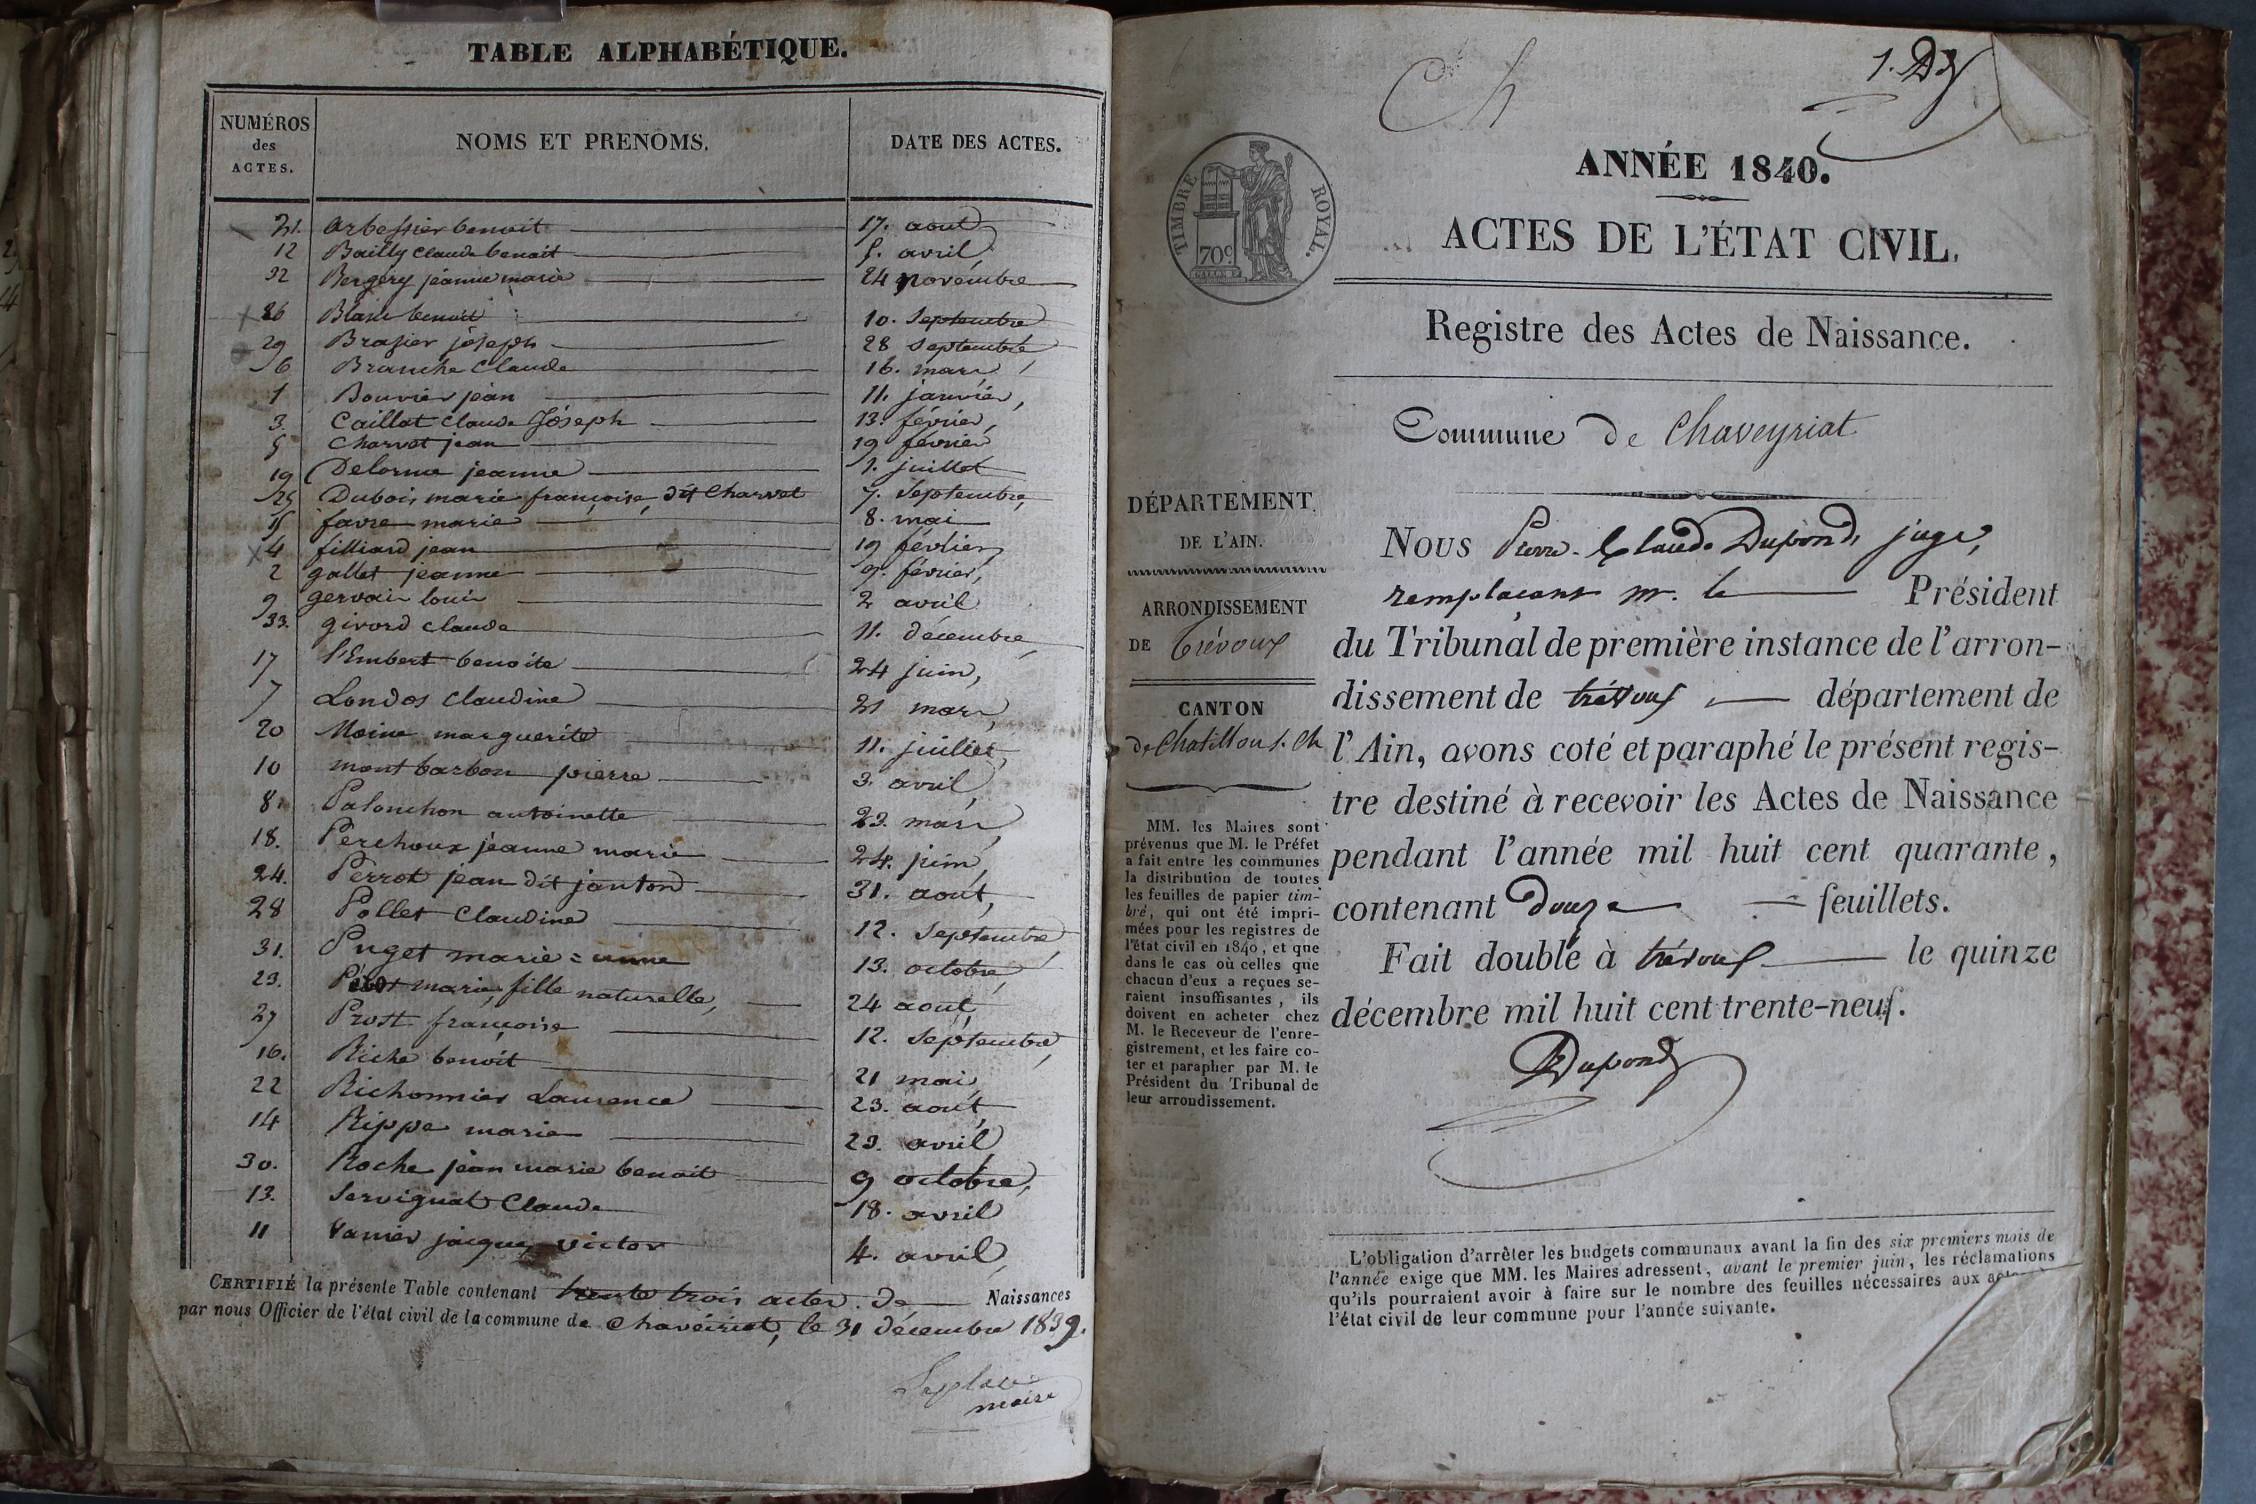 TABLE ALPHABÉTIQUE.
NUMÉROS des ACTES. NOMS ET PRENOMS. DATE DES ACTES.
21. arbessier benoit 17. aout
12 Bailly Claude benoit 5. avril,
32 Bergery jéanne marie 24 novémbre
26 Blanc benoit 10. Septembre
29 Brasier jóseph 28 septembre
6 Branche Claude 16. mars
1 Bouvier jéan 11. janviér,
3. Caillat Claude Jóseph 13. février,
5 Charvet jean 19 février
19 Delorme jeanne 1. juillet
25 Dubois, marie françoise, dit Charvet 7. Septembre,
15 favre marie 8. mai
4 filliard jean 19 février,
2 gallet jeanne 9. février,
9 gervais louis 2 avril
33. givord claude 11. décembre,
17 l'Embert benoite 24 juin,
7 Londos Claudine 21 mars,
20 Moine marguerite 11. juillet,
10 montbarbon pierre 3. avril,
8. Palonchon antoinette 23. mars,
18. Perchoux jéanne marie 24. juin,
24. Perrot jean dit janton 31. aout,
28 Pollet Claudine 12. Septembre,
31. Puget marie=anne 13. octobre,
23. marie, fille naturelle, 24 aout,
27 Prost françoise 12. Septembre,
16. Riche benoit 21 mai,
22 Richonnier Laurence 23. aout,
14 Rippe marie 23. avril
30. Roche jéan marie benoit 9 octobre,
13. Servignat Claude 18. avril
11 Vanier jacques victor 4. avril,
CERTIFIÉ la présente Table contenant trente trois actes. de Naissances
par nous Officier de l'état civil de la commune de Chavéiriat, le 31 décembre 1839.
maire
Ch
1. D
TIMBRE ROYAL.
70c
ANNÉE 1840.
ACTES DE L'ÉTAT CIVIL.
Registre des Actes de Naissance.
Commune de Chaveyriat
DÉPARTEMENT
DE L'AIN.
ARRONDISSEMENT
DE trévoux
CANTON
de Chatillon s. Ch
MM. les Maires sont
prévenus que M. le Préfet
a fait entre les communes
la distribution de toutes
les feuilles de papier tim-
bré, qui ont été impri-
mées pour les registres de
l'état civil en 1840, et que
dans le cas où celles que
chacun d'eux a reçues se-
raient insuffisantes, ils
doivent en acheter chez
M. le Receveur de l'enre-
gistrement, et les faire co-
ter et parapher par M. le
Président du Tribunal de
leur arrondissement.
Nous Pierre-Claude Dupond, juge,
remplaçant m. le Président
du Tribunal de première instance de l'arron-
dissement de trévoux département de
l'Ain, avons coté et paraphé le présent regis-
tre destiné à recevoir les Actes de Naissance
pendant l'année mil huit cent quarante,
contenant douze feuillets.
Fait double à trévoux le quinze
décembre mil huit cent trente-neuf.
Dupond
L'obligation d'arrêter les budgets communaux avant la fin des six premiers mois de
l'année exige que MM. les Maires adressent, avant le premier juin, les réclamations
qu'ils pourraient avoir à faire sur le nombre des feuilles nécessaires aux
l'état civil de leur commune pour l'année suivante.